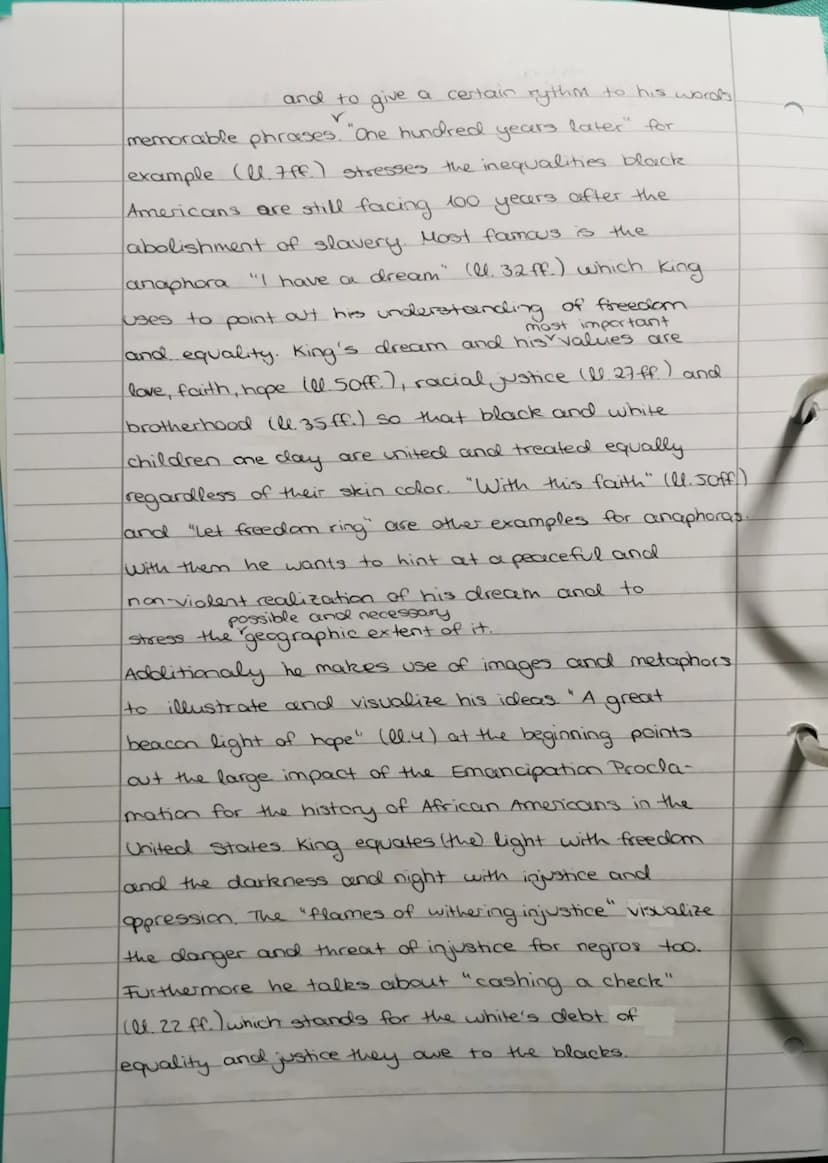 and to give a certain rythm to his words
memorable phrases. "One hundred years later" for
example (ll. 7ff.) stresses the inequalities black
Americans are still facing 100 years after the
abolishment of slavery. Most famous is the
anaphora "I have a dream" (ll. 32 ff.) which King
uses to point out his understanding of freedom
most important
and equality. King's dream and his values are
love, faith, hope (ll. 50ff.), racial justice (ll. 27 ff.) and
brotherhood (ll. 35 ff.) so that black and white
children one day are united and treated equally
regardless of their skin color. "With this faith" (ll. 50ff.)
and "Let freedom ring" are other examples for anaphoras.
With them he wants to hint at a peaceful and
non-violent realization of his dream and to
possible and necessary
stress the geographic extent of it.
Additionaly he makes use of images and metaphors
to illustrate and visualize his ideas. "A great
beacon light of hope" (ll. 4) at the beginning points
out the large impact of the Emancipation Procla-
mation for the history of African Americans in the
United States. King equates (the) light with freedom
and the darkness and night with injustice and
oppression. The "flames of withering injustice" visualize
the danger and threat of injustice for negros too.
Furthermore he talks about "cashing a check"
(ll. 22 ff.) which stands for the white's debt of
equality and justice they owe to the blacks.